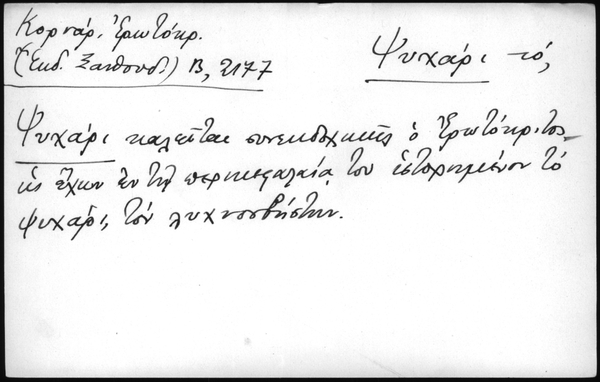 Κορνάρ. Ἐρωτόκρ.
(Ἔκδ. Ξανθουδ.) Β, 2177
Ψυχάρι τό,
Ψυχάρι καλεῖται συνεκδοχικῶς ὁ Ἐρωτόκριτος
ὡς ἔχων ἐν τῇ περικεφαλαίᾳ του ἱστορημένον τό
ψυχάρι, τόν λυχνοσβήστην.